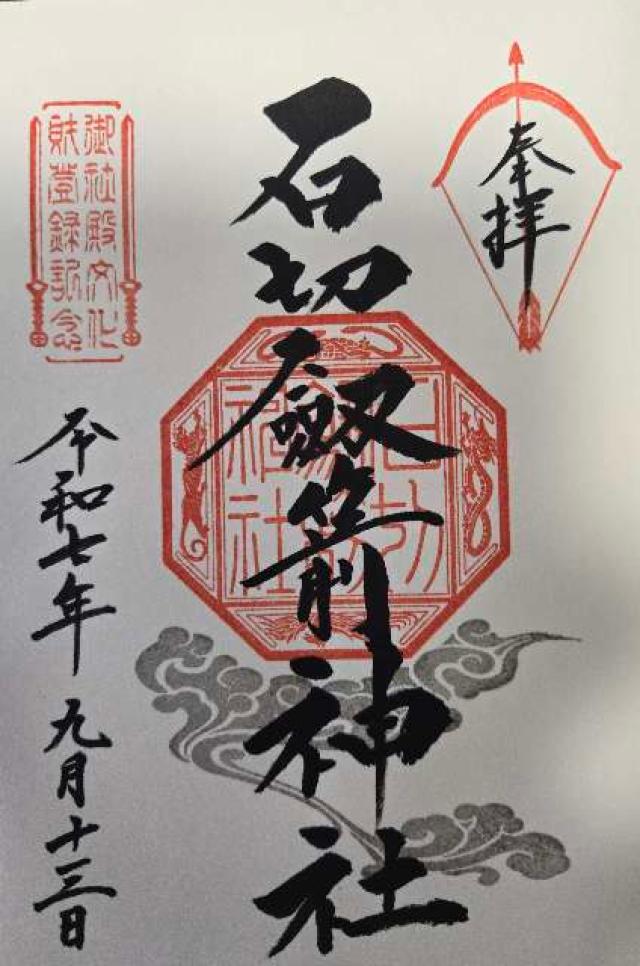 奉拝
石切劔箭神社
石切劔箭神社
御社殿文化
財登録記念
令和七年 九月十三日